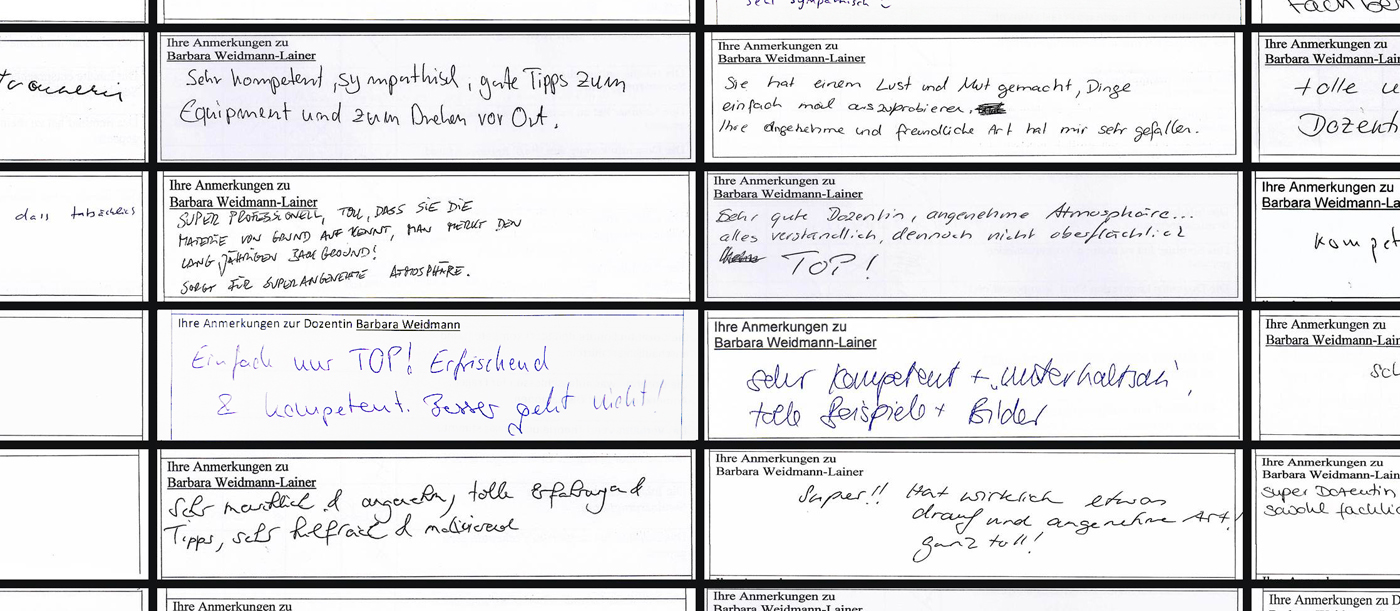 sehr sympathisch
Fachbe
Ihre Anmerkungen zu
Barbara Weidmann-Lainer
Sehr kompetent, sympathisch, gute Tipps zum
Equipment und zum Drehen vor Ort.
Ihre Anmerkungen zu
Barbara Weidmann-Lainer
Sie hat einem Lust und Mut gemacht, Dinge
einfach mal auszuprobieren,
Ihre angenehme und freundliche Art hat mir sehr gefallen.
Ihre Anmerkungen
Barbara Weidmann
tolle u
Dozent
dass
Ihre Anmerkungen zu
Barbara Weidmann-Lainer
SUPER PROFESSIONELL, TOLL, DASS SIE DIE
MATERIE VON GRUND AUF KENNT, MAN MERKT DEN
LANGJÄHRIGEN BACKGROUND!
SORGT FÜR SUPERANGENEHME ATMOSPHÄRE.
Ihre Anmerkungen zu
Barbara Weidmann-Lainer
Sehr gute Dozentin, angenehme Atmosphäre...
alles verständlich, dennoch nicht oberflächlich
TOP!
Ihre Anmerkungen zu
Barbara Weidmann-La
kompet
Ihre Anmerkungen zur Dozentin Barbara Weidmann
Einfach nur TOP! Erfrischend
& kompetent. Besser geht nicht!
Ihre Anmerkungen zu
Barbara Weidmann-Lainer
sehr kompetent + unterhaltsam,
tolle Beispiele + Bilder
Ihre Anmerkungen zu
Barbara Weidmann-La
Ihre Anmerkungen zu
Barbara Weidmann-Lainer
Sehr & angenehm, tolle
Tipps, sehr hilfreich & motivierend
Ihre Anmerkungen zu
Barbara Weidmann-Lainer
Super!! Hat wirklich etwas
drauf und angenehme Art!
ganz toll!
Ihre Anmerkungen zu
Barbara Weidmann-La
super Dozentin
sowohl fachlic
Ihre Anmerkungen zu
Ihre Anmerkungen zu
Barbara Weidmann-Lainer
Ihre Anmerkungen zu D